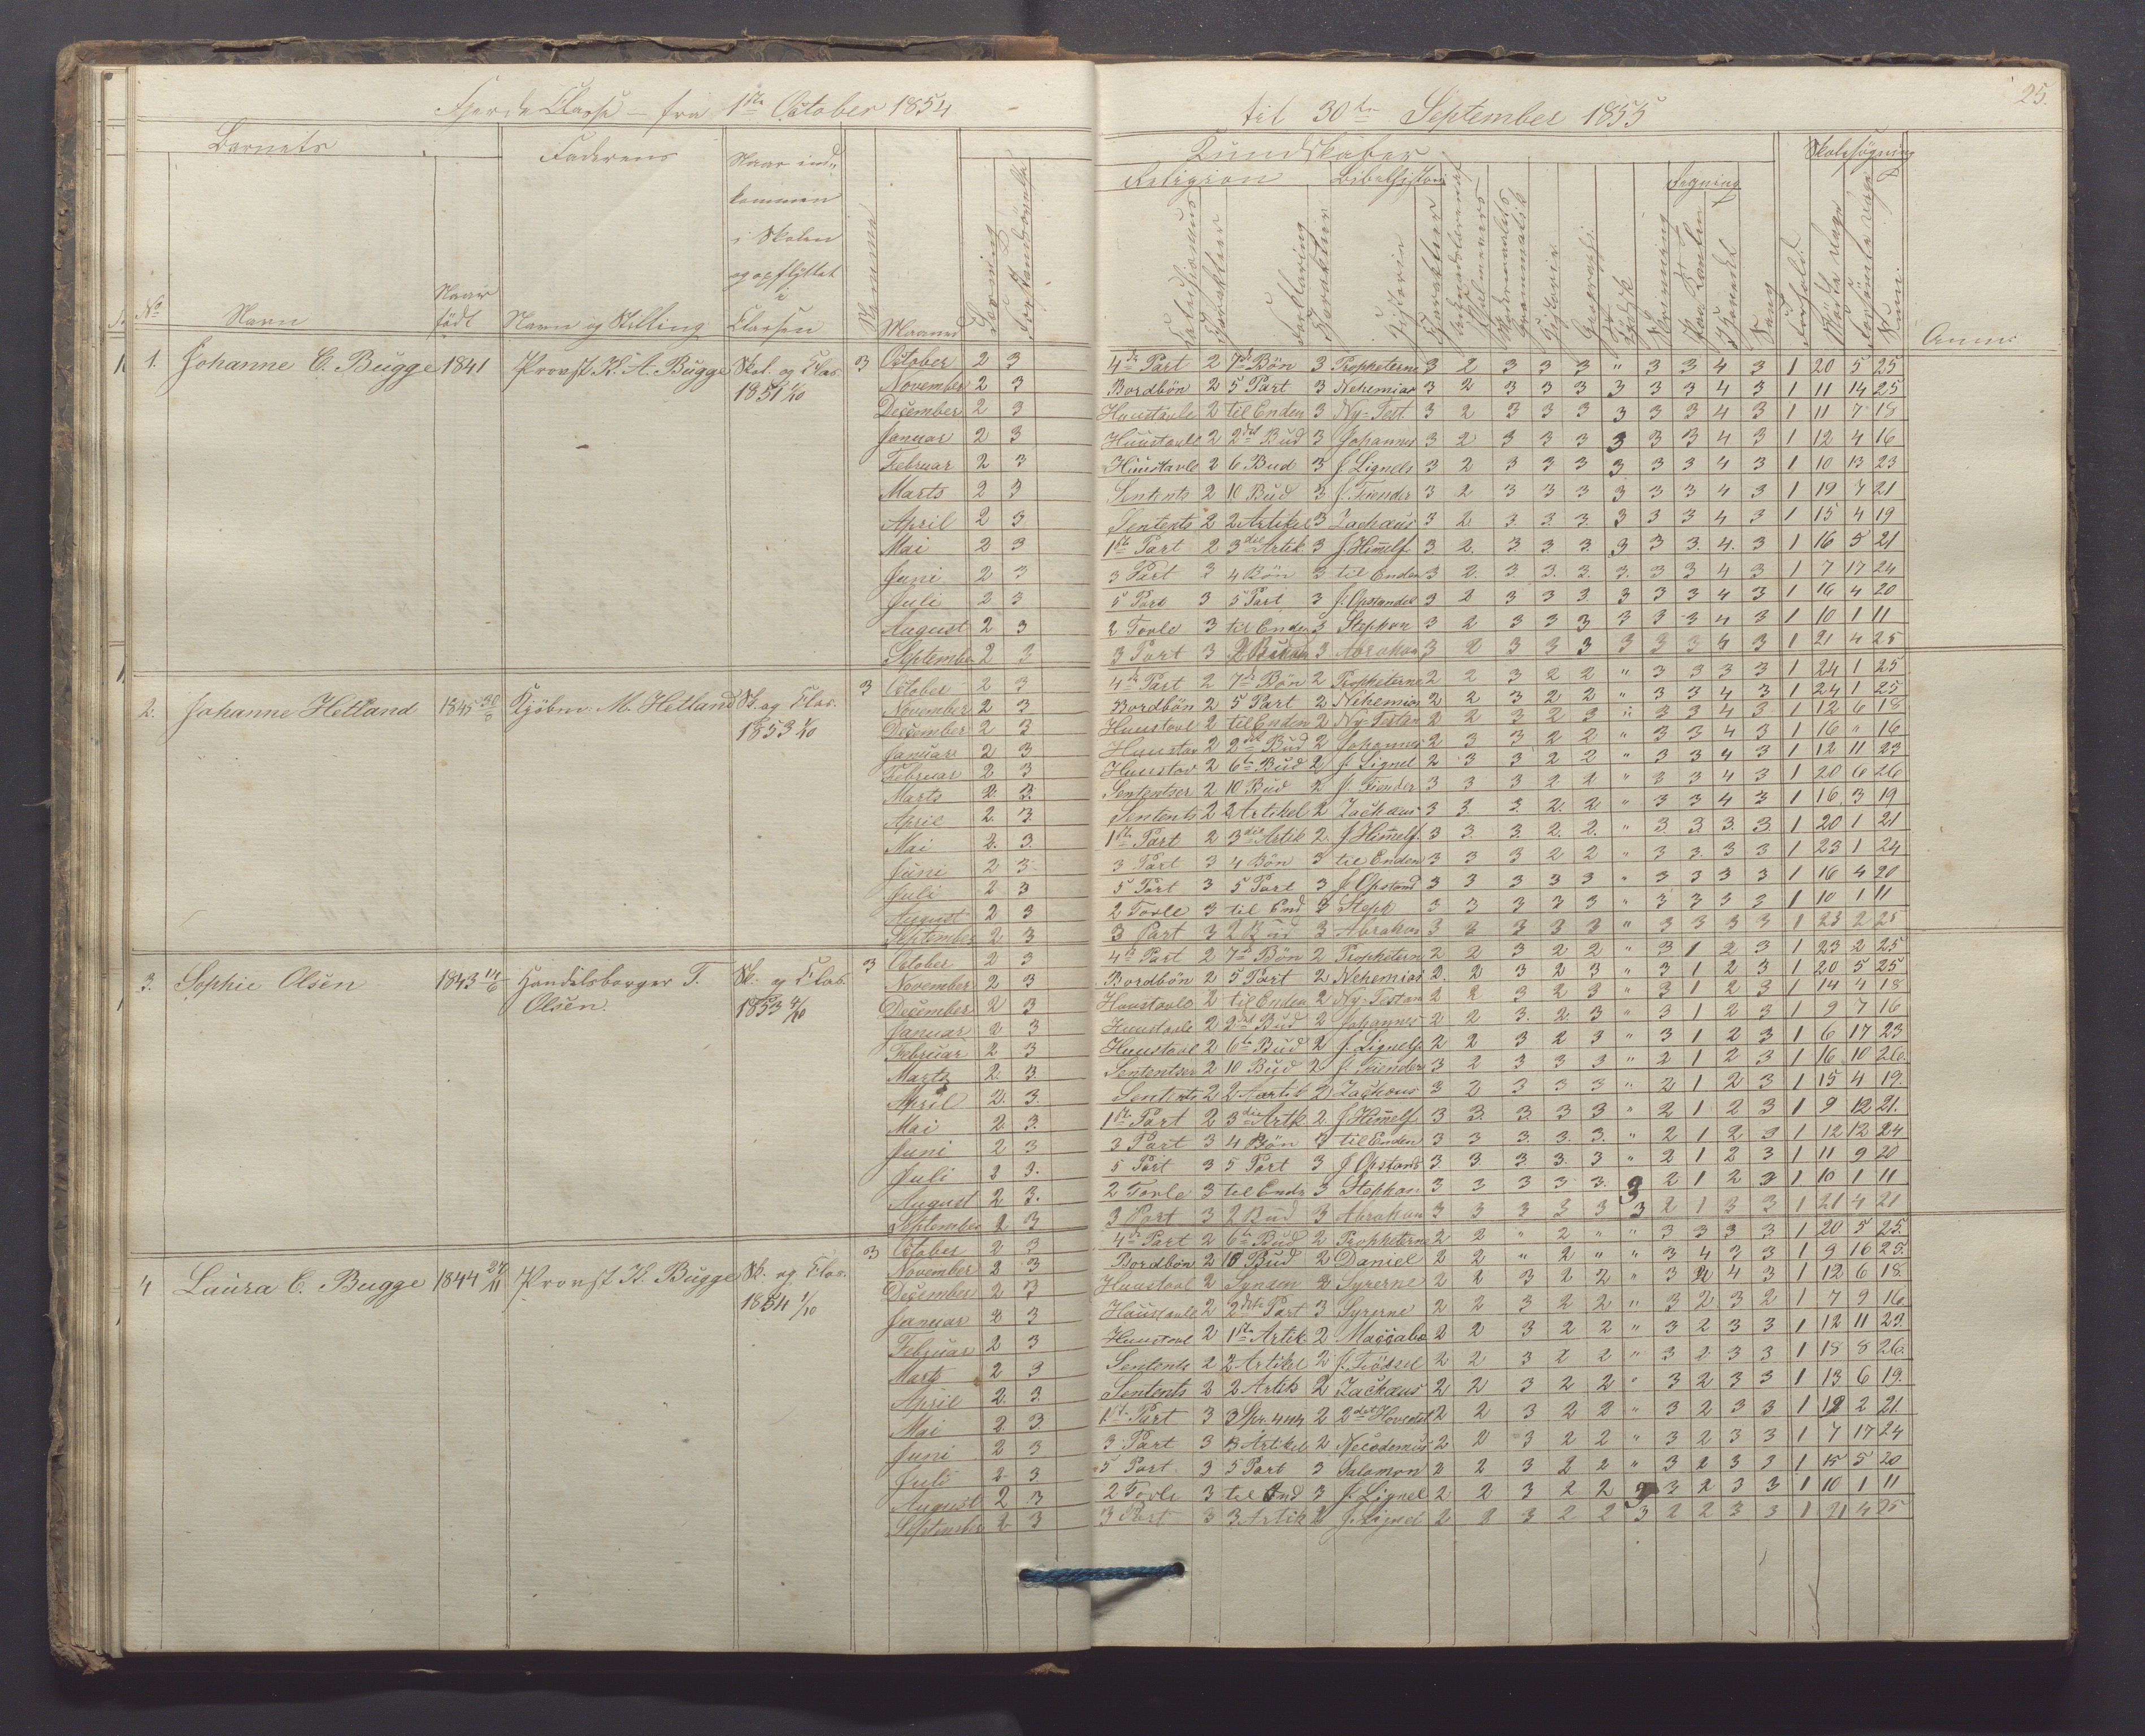 Fjerde Classe — fra 1ste October 1854
til 30te September 1855
25.
Barnets
Faderens
Naar ind-
kommen
i Skolen
og opflyttet
i
Classen
No
Navn
Naar
født
Navn og Stilling
Maaned
Læsning
Kundskaber
Religion
Bibelhistorie
Forklaring
Historie
Geographi
Regning
Sang
Skolesøgning
Anm:
1. Johanne C. Bugge 1841 Provst K. A. Bugge Skol. og Clas. 3
1851 1/10
October 2 3 4de Part 2 7de Bön 3 Propheterne 3 2 3 3 3 " 3 3 4 3 1 20 5 25
November 2 3 Bordbön 2 5 Part 3 Nehemias 3 2 3 3 3 3 3 3 4 3 1 11 14 25
December 2 3 Huustavle 2 til Enden 3 Ny-Test. 3 2 3 3 3 3 3 3 4 3 1 11 7 18
Januar 2 3 Huustavle 2 2det Bud 3 Johannes 3 2 3 3 3 3 3 3 4 3 1 12 4 16
Februar 2 3 Huustavle 2 6 Bud 3 J. Lignels 3 2 3 3 3 3 3 3 4 3 1 10 13 23
Marts 2 3 Sentents 2 10 Bud 3 J. Fiender 3 2 3 3 3 3 3 3 4 3 1 19 7 21
April 2 3 Sentents 2 2 Artikel 3 Zachæus 3 2 3. 3. 3. 3 3 3 4 3 1 15 4 19
Mai 2 3 1ste Part 2 3die Artik 3 J. Himelf. 3 2. 3. 3. 3. 3 3 3. 4. 3 1 16 5 21
Juni 2 3 3 Part 3 4 Bön 3 til Enden 3 2. 3. 3. 3. 3. 3 3 4 3 1 7 17 24
Juli 2 3 5 Part 3 5 Part 3 J. Opstandel 3 2 3 3 3 3 3 3 4 3 1 16 4 20
August 2 3 2 Tavle 3 til Enden 3 Stephan 3 2 3 3 3 3 3 3 4 3 1 10 1 11
September 2 3 3 Part 3 2 Bud 3 Abraham 3 2 3 3 3 3 3 3 4 3 1 21 4 25
2. Johanne Hetland 1845 30/8 Kjöbm: M. Hetland Sk. og Clas. 3
1853 1/10
October 2 3 4de Part 2 7de Bön 2 Propheterne 2 2 3 2 2 " 3 3 3 3 1 24 1 25
November 2 3 Bordbön 2 5 Part 2 Nehemias 2 2 3 2 2 " 3 3 4 3 1 24 1 25
December 2 3 Huustavl 2 til Enden 2 Ny-Testam 2 2 3 2 3 " 3 3 4 3 1 12 6 18
Januar 2 3 Huustav 2 2det Bud 2 Johannes 2 3 3 2 2 " 3 3 4 3 1 16 " 16
Februar 2 3 Huustav 2 6te Bud 2 J. Lignel 2 3 3 2 2 " 3 3 4 3 1 12 11 23
Marts 2. 3. Sententser 2 10 Bud 2 J. Fiender 3 3 3 2 2 " 3 3 4 3 1 20 6 26
April 2. 3. Sentents 2 2 Artikel 2 Zachæus 3 3. 3. 2. 2. " 3 3 4 3 1 16 3 19
Mai 2. 3. 1ste Part 2 3die Artik 2. J. Himelf. 3 3. 3. 2. 2. " 3. 3. 3. 3. 1 20 1 21
Juni 2 3. 3 Part 3 4 Bön 3 til Enden 3 3 3 2 2 " 3 3. 3 3 1 23 1 24
Juli 2 3 5 Part 3 5 Part 3 J. Opstand 3 3 3 3 3 " 3 3 3 3 1 16 4 20
August 2 3 2 Tavle 3 til End 3 Steph 3 3 3 3 3 " 3 3 3 3 1 10 1 11
September 2 3 3 Part 3 2 Bud 3 Abraham 3 3 3 3 3 " 3 3 3 3 1 23 2 25
3. Sophie Olsen 1843 14/6 Handelsborger T. Sk. og Clas. 3
Olsen. 1853 4/10
October 2 3 4de Part 2 7de Bön 2 Propheterne 2 2 3 2 2 " 3 1 2 3 1 23 2 25
November 2 3 Bordbön 2 5 Part 2 Nehemias 2. 2 3 2 3 " 3 1 2 3 1 20 5 25
December 2 3 Huustavle 2 til Enden 2 Ny-Testam 2 2 3 2 3 " 3 1 2 3 1 14 4 18
Januar 2 3 Huustavle 2 2det Bud 2 Johannes 2 2 3. 2. 3 " 3 1 2 3 1 9 7 16
Februar 2 3 Huustavl 2 6te Bud 2 J. Lignels. 2 2 3 2 3 " 3 1 2 3 1 6 17 23
Marts 2. 3. Sententser 2 10 Bud 2 J. Fiender 3 2 3 3 3 " 2 1 2 3 1 16 10 26.
April 2. 3. Sentents 2 2 Artik 2 Zachæus 3 2 3 3 3 " 2 1 2 3 1 15 4 19.
Mai 2 3. 1ste Part 2 3die Artk 2. J. Himelf. 3 3. 3. 3 3 " 2 1 2 3 1 9 12 21.
Juni 2 3 3 Part 3 4 Bön 3 til Enden 3 3 3. 3. 3. " 2 1 2 3 1 12 12 24
Juli 2 3. 5 Part 3 5 Part 3 J. Opstand 3. 3. 3 3. 3 " 2 1 2 3 1 11 9 20
August 2 3. 2 Tavle 3 til Ende 3 Stephan 3 3 3 3 3. 3 2 1 2 3 1 10 1 11
September 2 3 3 Part 3 2 Bud 3 Abraham 3 3 3 3 3 3 2 1 3 3 1 21 4 21
4 Laura C. Bugge 1844 24/11 Provst K. Bugge Sk. og Clas. 3
1854 1/10
October 2 3 4de Part 2 6te Bud 2 Propheterne 2 2 " 2 " " 3 3 3 3. 1 20 5 25.
November 2 3 Bordbön 2 10 Bud 2 Daniel 2 2 " 2 " " 3 4 3 3 1 9 16 25.
December 2 3 Huustavl 2 Synden 2 Syrerne 2 2 3 2 2 " 3 2 4 3 1 12 6 18.
Januar 2 3 Huustavle 2 2den Part 3 Syrerne 2 2 3 2 2 " 3 2 3 2 1 7 9 16
Februar 2 3 Huustavl 2 1ste Artik. 2 Maccabæ 2 2 3 2 2 " 3 2 3 3 1 12 11 23.
Marts 2 3 Sentents 2 2 Artikel 2 J. Födsel 2 2 3 2 2 " 3 2 3 3 1 18 8 26.
April 2. 3. Sentents 2 2 Artik 2 Zachæus 2 2 3 2 2 " 3 2 3 3 1 13 6 19.
Mai 2. 3. 1ste Part 3 2 2 2 3 2 2 " 3 2 3 3 1 19 2 21.
Juni 2 3 3 Part 3 3 Artikel 2 Necodemus 2 2 3 2 2 " 3 2 3 3 1 7 17 24
Juli 2 3 5 Part 3 5 Part 3 Salomon 2 2 3 2 2 " 3 2 3 3 1 15 5 20
August 2 3 2 Tavle 3 til End 3 J. Lignel 2 2 3 2 2 3 3 2 3 3 1 10 1 11
September 2 3 3 Part 3 3 Artik 2 J. Lignel 2 2 3 2 2 3 2 2 3 3 1 21 4 25